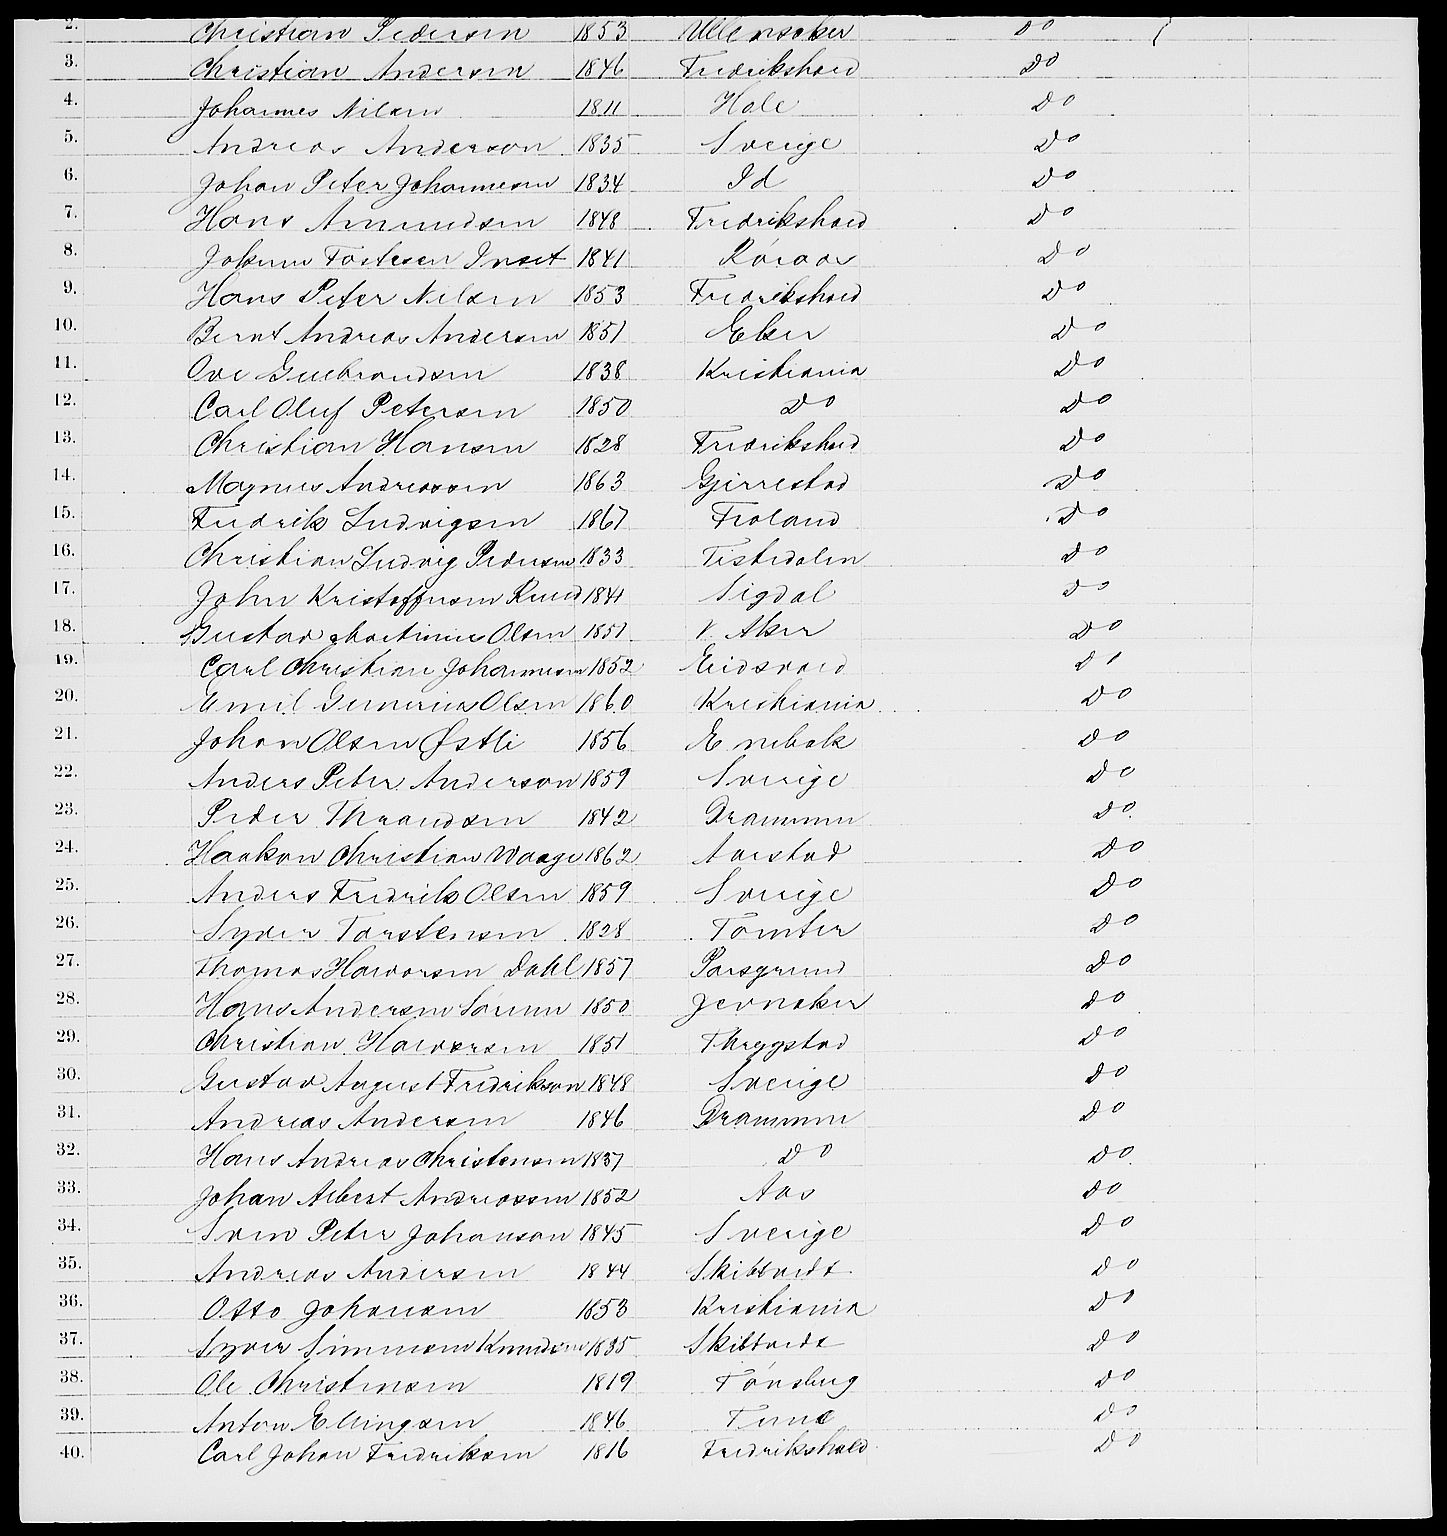 2. Christian Pedersen 1853 Ullensaker Do
3. Christian Andersen 1846 Fredrikshald Do
4. Johannes Nilsen 1811 Hole Do
5. Andreas Anderson 1835 Sverige Do
6. Johan Peter Johannesen 1834 Id Do
7. Hans Amundsen 1848 Fredrikshald Do
8. Johan Tostesen Inset 1841 Röraas Do
9. Hans Peter Nilsen 1853 Fredrikshald Do
10. Bernt Andreas Andersen 1851 Eker Do
11. Ove Gudbrandsen 1838 Kristiania Do
12. Carl Oluf Petersen 1850 Do Do
13. Christian Hansen 1828 Fredrikshald Do
14. Magnus Andreassen 1863 Gjerrestad Do
15. Fredrik Ludvigsen 1867 Froland Do
16. Christian Ludvig Pedersen 1833 Tistedalen Do
17. John Kristoffersen Ruud 1841 Sigdal Do
18. Gustav Martinius Olsen 1851 V. Aker Do
19. Carl Christian Johannesen 1852 Eidsvold Do
20. Emil Olsen 1860 Kristiania Do
21. Johan Olsen Østli 1856 Enebak Do
22. Anders Peter Anderson 1859 Sverige Do
23. Peder Thrandsen 1842 Drammen Do
24. Haakon Christian Waage 1862 Aarstad Do
25. Anders Fredrik Olsen 1859 Sverige Do
26. Syver Torstensen 1828 Tomter Do
27. Thomas Halvorsen Dahl 1857 Porsgrund Do
28. Hans Andersen 1850 Jevnaker Do
29. Christian Halvorsen 1851 Thrygstad Do
30. Gustav August Fredrikson 1848 Sverige Do
31. Andreas Andersen 1846 Drammen Do
32. Hans Andreas Christensen 1837 Do Do
33. Johan Albert Andreassen 1852 Aas Do
34. Sven Peter Johanson 1845 Sverige Do
35. Andreas Andersen 1844 Skibtvedt Do
36. Otto Johansen 1853 Kristiania Do
37. Syver Simensen Knudsen 1835 Skibtvedt Do
38. Ole Christensen 1819 Tönsberg Do
39. Anton Ellingsen 1846 Tune Do
40. Carl Johan Fredriksen 1816 Fredrikshald Do